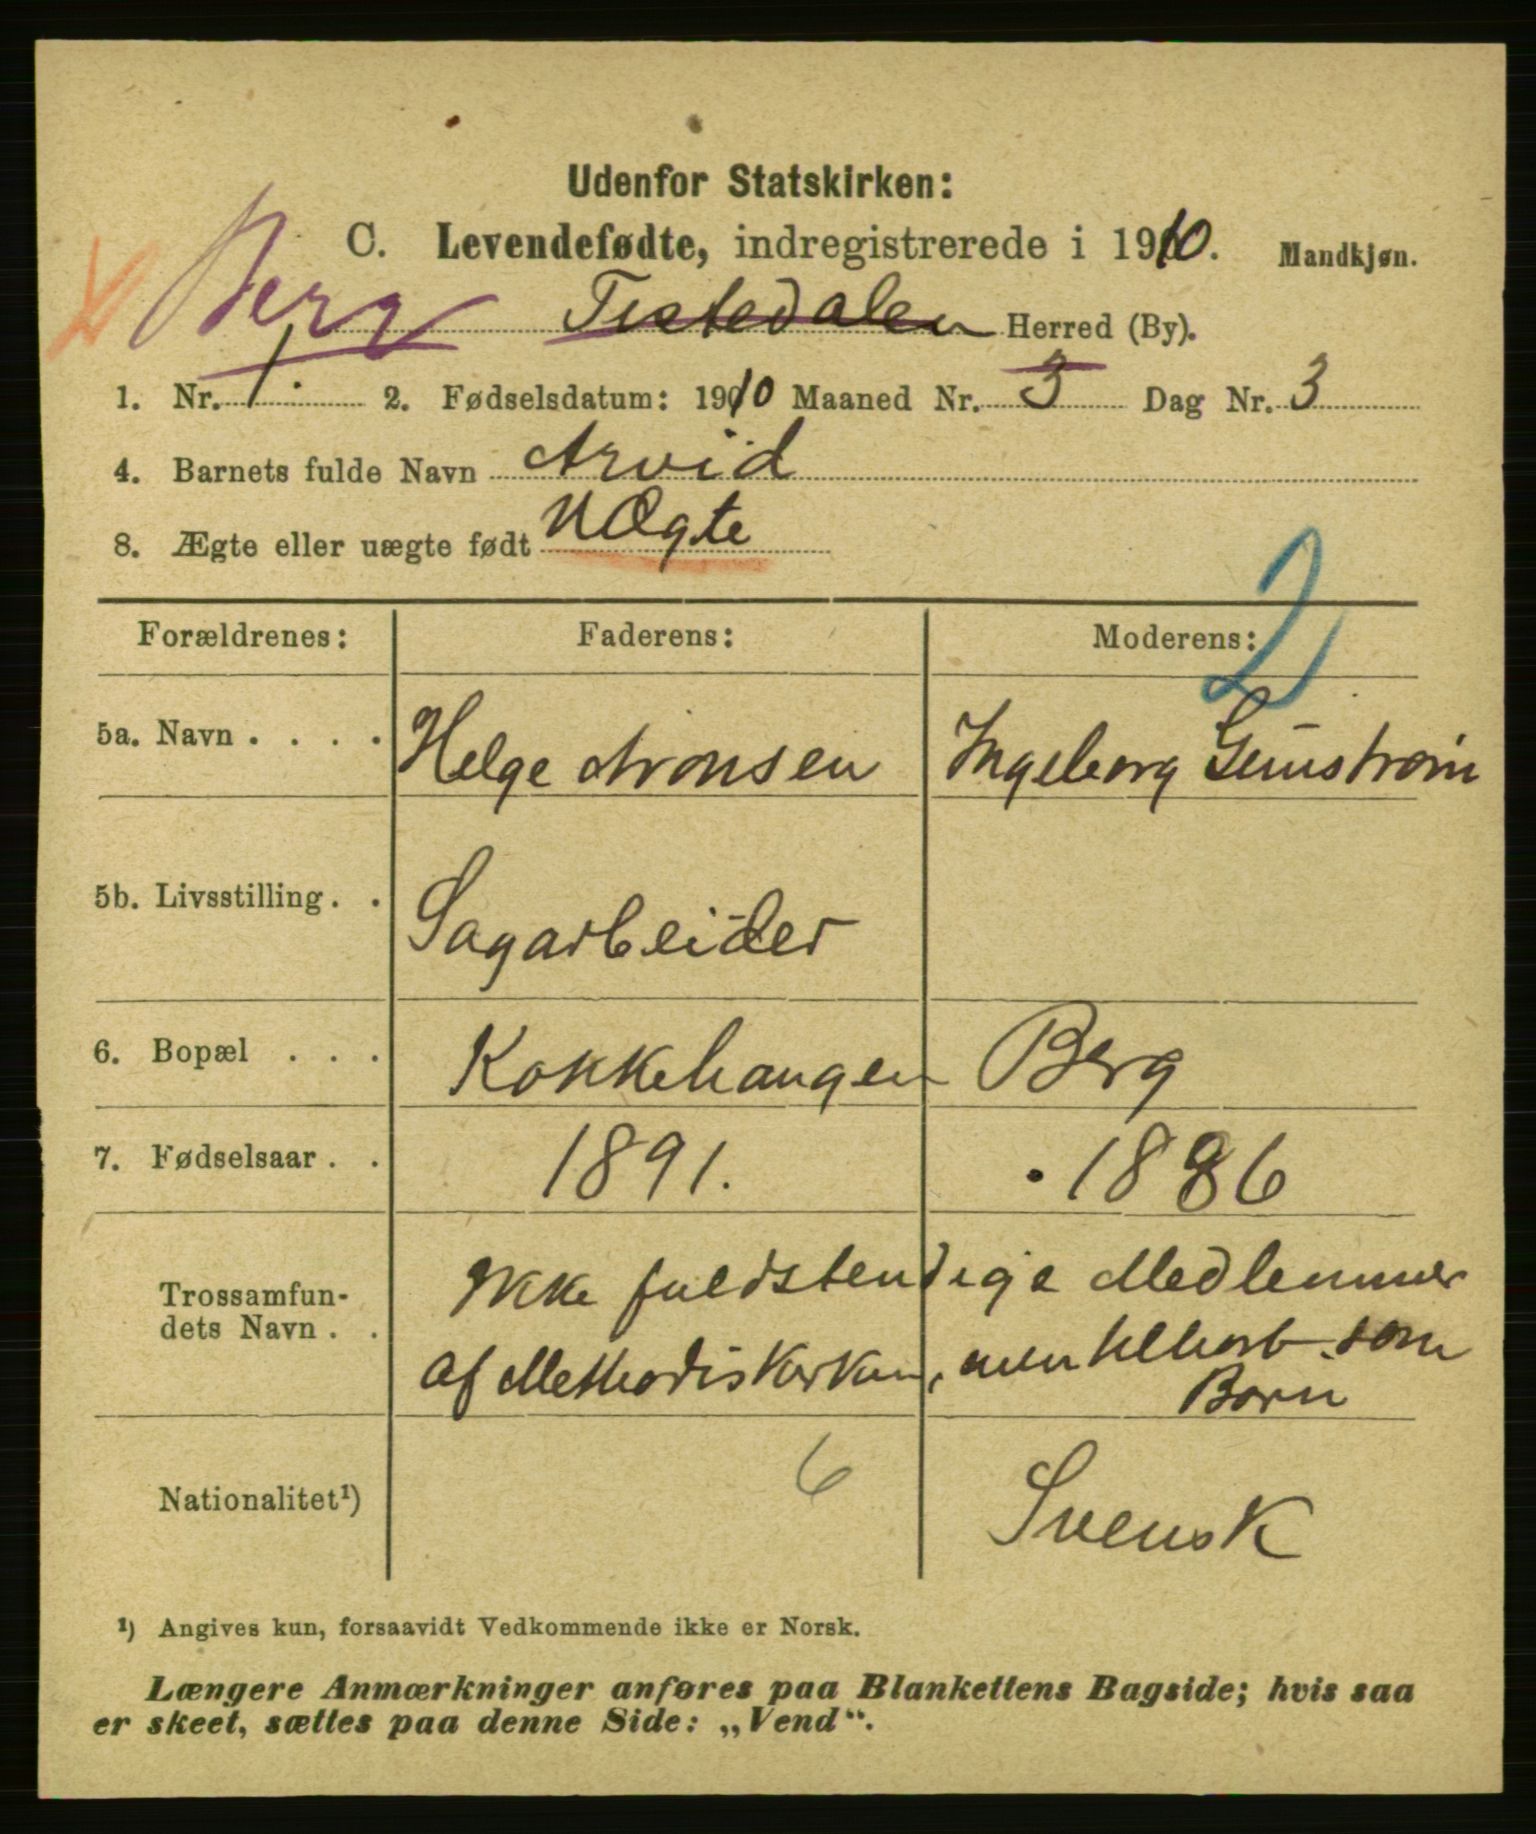 Udenfor Statskirken:
C. Levendefødte, indregistrerede i 1910. Mandkjøn.
Berg Tistedalen Herred (By).
1. Nr. 1. 2. Fødselsdatum: 1910 Maaned Nr. 3 Dag Nr. 3
4. Barnets fulde Navn Arvid
8. Ægte eller uægte født UÆgte
2
Forældrenes: Faderens: Moderens:
5a. Navn . . . . Helge Aronsen Ingeborg
5b. Livsstilling . . Sagarbeider
6. Bopæl . . . Kokkehaugen Berg
7. Fødselsaar . . 1891. 1886
Trossamfun-
dets Navn . .
Ikke fuldstendige Medlemmer
af Methodiskirken, men som
Børn
Nationalitet¹) 6 Svensk
¹) Angives kun, forsaavidt Vedkommende ikke er Norsk.
Længere Anmærkninger anføres paa Blankettens Bagside; hvis saa
er skeet, sættes paa denne Side: „Vend“.